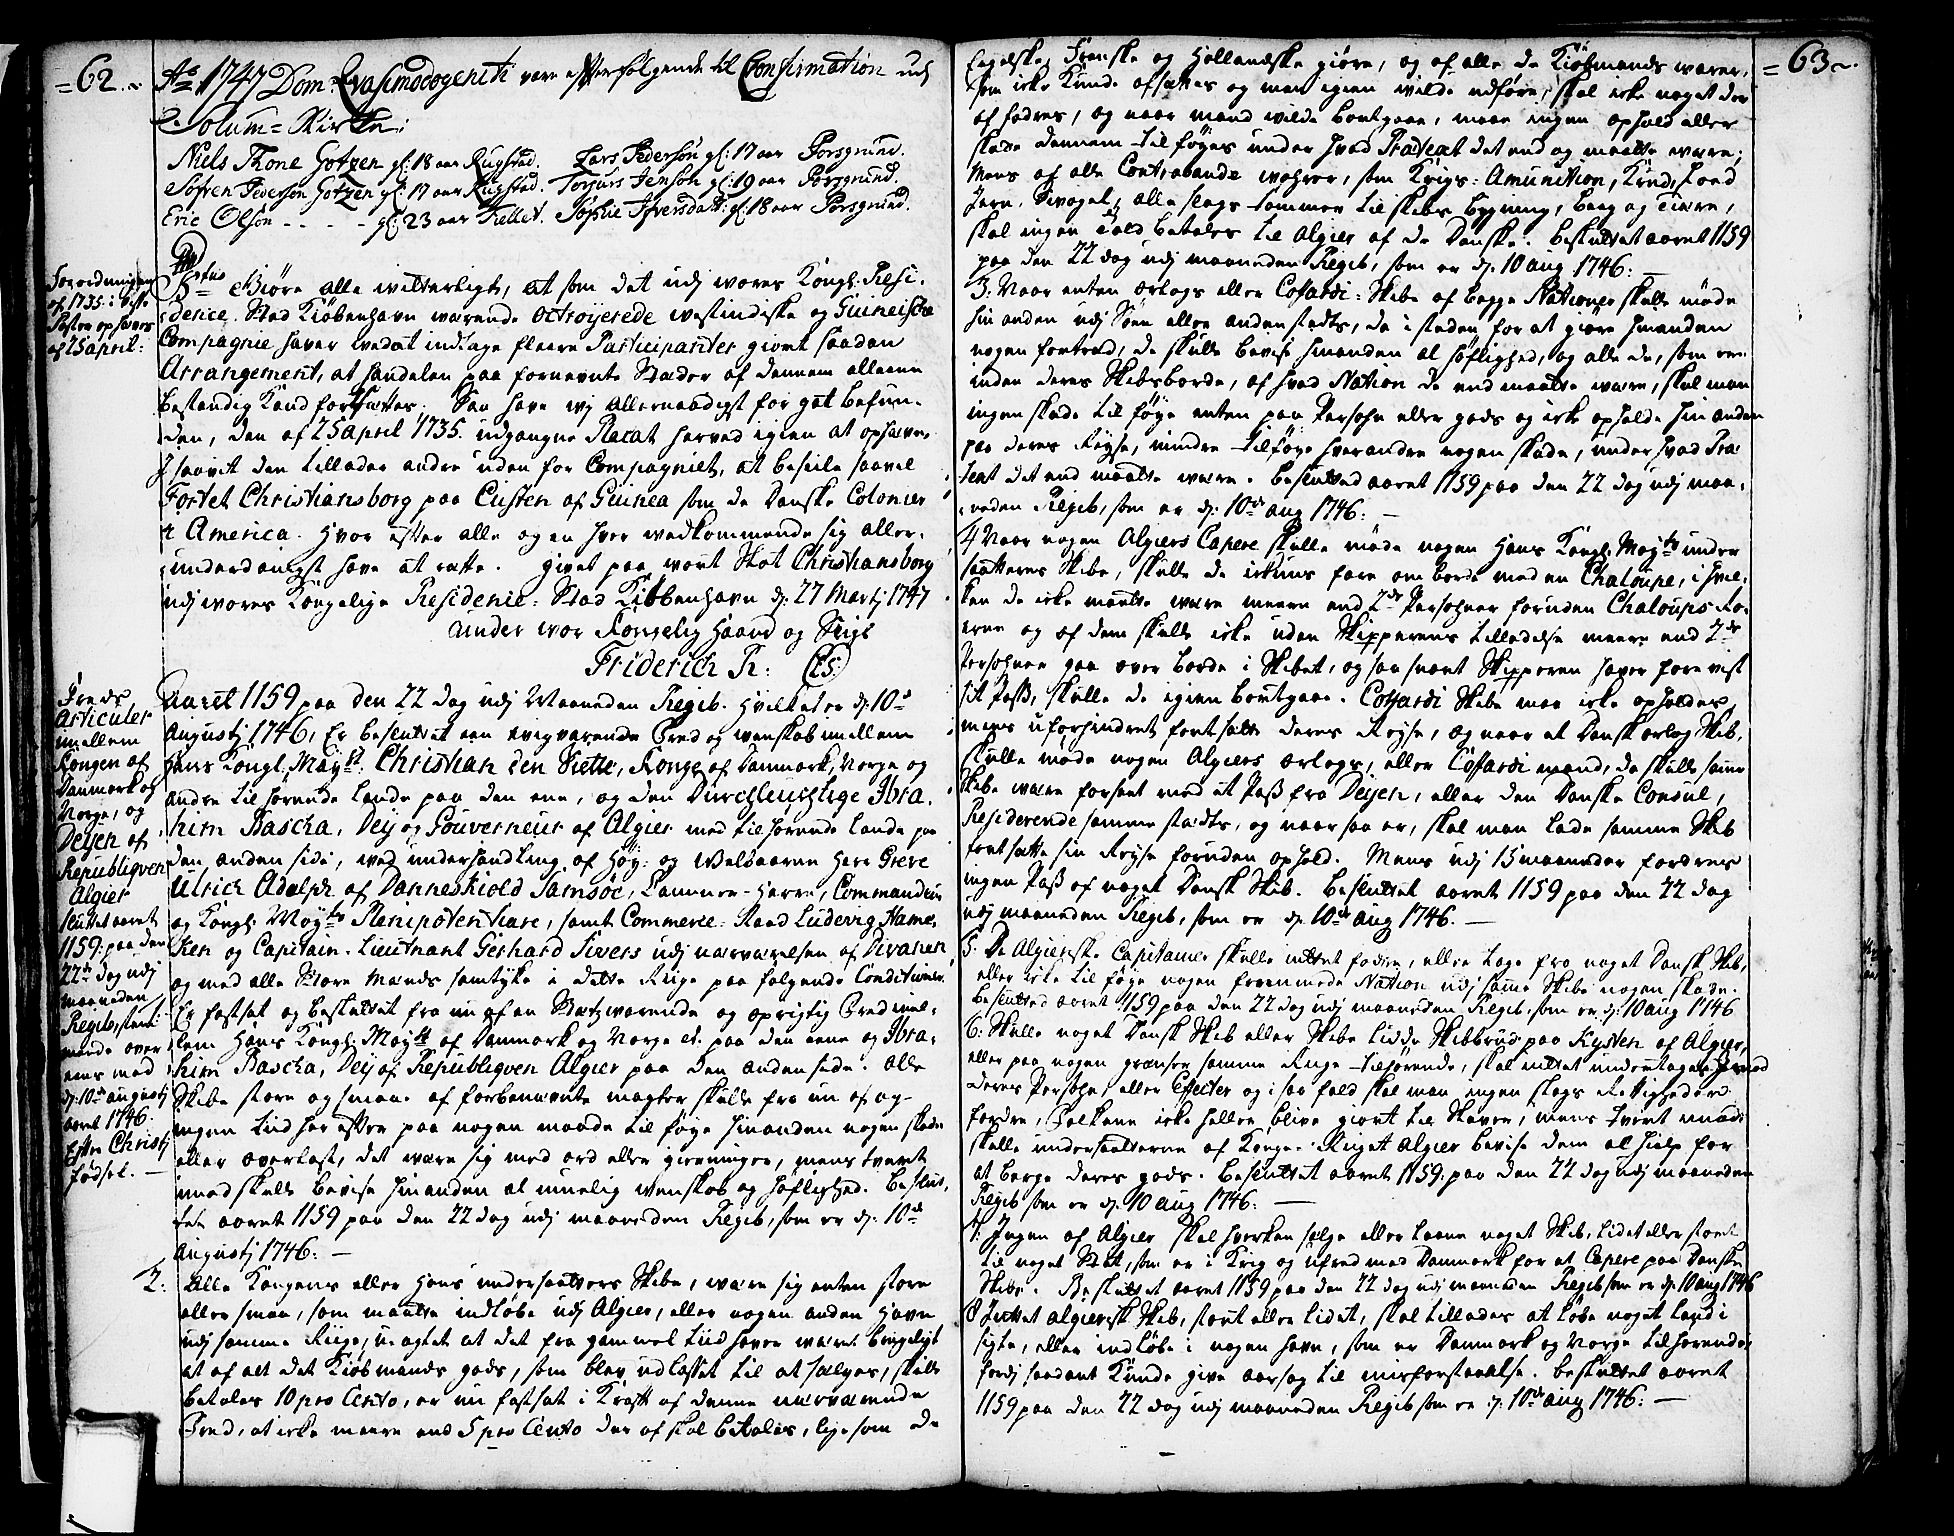 =62.~
Ao 1747 Dom: Qvasimodogeniti vare efterfølgende til Confirmation udj
Solum=Kirke:
Niels Thone Götzen gl: 18 aar Rugstad. Lars Pederson gl: 17 aar Porsgrund.
Søfren Pederson Götzen gl: 17 aar Rugstad. Torjurs Jenson gl: 19 aar Porsgrund.
Eric Olson - - - - gl: 23 aar Fellet. Sophie Ifversdatt: gl: 18 aar Porsgrund.
Forordningen
af 1735. i Vest
opheves
af 25 april:
Giøre alle vitterligt, at som det udj vores Kongl: Resi-
dence-Stad Kiøbenhavn værende octroyerede vestindiske og Guineiske
Compagnie haver ved at indtage fleere Participanter giort saadan
Arrangement, at handelen paa fornevnte Stæder af dennem alleene
bestandig kand fortsættes. Saa have vj allernaadigst for got befun-
den, den af 25 april 1735. udgangne Placat herved igien at ophæve,
saavit den tillader andre uden for Compagniet, at beseile saavel
Fortet Christiansborg paa Custen af Guinea som de Danske Colonier
i America. Hvor efter alle og en hver vedkommende sig aller-
underdanigst have at rette. Givet paa vort Slot Christiansborg
udj vores Kongelige Residence-Stad Kiøbbenhavn d: 27 Martj 1747
under vor Kongelig Haand og Seigl
Friderich R: (LS:)
Freds
Articuler
imellem
Kongen af
Danmark og
Norge, og
Deijen af
Republiqven
Algier
sluttet aaret
1159: paa den
22de dag udj
maaneden
Regib, stem-
mende over
eens med
d: 10de augustj
aaret 1746.
Efter Christj
fødsel. —
Aaret 1159 paa den 22 dag udj Maaneden Regib. hvilket er d: 10de
Augustj 1746, Er besluttet een evigvarende Fred og venskab imellem
Hans Kongl: Mayst: Christian den Siette, Konge af Danmark, Norge og
andre tilhørende lande paa den ene, og den Durchleuchtige Ibra-
him Bascha, Deij og Gouverneur af Algier med tilhørende lande paa
den anden side, ved underhandling af Høy- og Velbaaren Herr Greve
Ulrich Adolph af Danneskiold Samsöe, Cammer-Herre, Commandeur
og Kongl: Mayts Plenipotentiare, samt Commerce-Raad Ludevig Hame-
ken og Capitain-Lieutnant Gerhard Sivers udj nærværelsen af Divanen
og med alle store Mænds samtyke i dette Rige paa følgende Conditioner.
Er fastsat og besluttet fra nu af en stætzvarende og oprigtig Fred imel-
lem Hans Kongl: Maytt af Danmark og Norge et. paa den eene og Ibra-
him Bascha, Deij af Republiqven Algier paa den anden side. Alle
Skibe store og smaae af forbenævnte magter skulle fra nu af og
ingen tiid herefter paa nogen maade tilføye hinanden nogen skade
eller overlast, det være sig med ord eller gierninger, mens tvert
imod skulle bevise hinanden al muelig venskab og høflighed. Beslut-
tet aaret 1159 paa den 22 dag udj maaneden Regib, som er d: 10de
Augustj 1746. —
2. Alle Kongens eller Hans undersaatters Skibe, være sig enten store
eller smaa, som maatte indløbe udj Algier, eller nogen anden Havn
udj samme Rige, uagtet at det fra gammel tiid haver været brugeligt
at af alt det Kiøbmands gods, som blev udlosset til at sælges, skulle
betales 10 pro Cento, er nu fastsat i Kraft af denne nærværende
Fred, at icke meere end 5 pro Cento der af skal betales, lige som de
=63~.
Engelske, Franske og Hollandske giøre, og af alle de Kiøbmands varer,
som icke kunde afsættes og man igien vilde udføre, skal icke noget der
af fodres, og naar mand vilde bortgaae, maae ingen ophold eller
skade dennem tilføyes under hvad Prætext det end og maatte være;
Mens af alle Contrabande vahrer, som Krigs-Amunition, Krud, Lood
Jern, Svovel, alle slags tømmer til skibs bygning, beeg og tiære,
skal ingen Told betales til Algier af de Danske. Besluttet aaret 1159
paa den 22 dag udj maaneden Regib, som er d: 10 aug 1746: —
3. Naar enten orlogs eller Coffardi-Skibe af begge Nationer skulle møde
hinanden udj Søen eller andenstædts, da i steden for at giøre hinanden
nogen fortræd, da skulle bevise hinanden al høflighed, og alle de, som ere
inden deres Skibsborde, af hvad Nation de end maatte være, skal man
ingen skade tilføye enten paa Persohn eller gods og icke opholde hinanden
paa deres Reyse, mindre tilføye hverandre nogen skade, under hvad Præ-
text det end maatte være. Besluttet aaret 1159 paa den 22 dag udj maa-
neden Regib, som er d: 10de aug 1746: —
4 Naar nogen Algiers Capere skulle møde nogen Hans Kongl: Mayts under
saatteres Skibe, skulle de ickuns fare om borde med en Chaloupe, i hvil-
ken de icke maatte være meere end 2de Persohner foruden Chaloups Ro-
erne og af dem skulle icke uden Skipperens tilladelse meere end 2de
Persohner gaa over borde i Skibet, og saa snart Skipperen haver forevist
sit Pass, skulle de igien bortgaae. Coffardi Skibe maa icke opholdes,
mens uforhindret fortsætte deres Reyse, og naar et Dansk orlog Skib,
skulle møde nogen Algiers orlogs, eller Coffardi mand, da skulle samme
Skibe være forseet med et Pass fra Deijen, eller den Danske Consul,
Residerende samme stædts, og naar saa er, skal man lade samme Skib
fortsætte sin Reyse foruden ophold. Mens udj 15 maaneder fordres
ingen Pass af noget Dansk Skib. Besluttet aaret 1159 paa den 22 dag
udj maaneden Regib, som er d: 10de aug 1746. —
5. De Algierske Capitainer skulle intet fodre, eller tage fra noget Dansk Skib,
eller icke tilføye nogen fremmede Nation udj samme Skibe nogen skade.
Besluttet aaret 1159 paa den 22 dag udj maaneden Regib, som er d: 10 aug 1746
6. Skulle noget Dansk Skib eller Skibe lidde Skibbrud paa Kysten af Algier,
eller paa nogen grænser samme Rige tilhørende, skal intet undertages imod
deres Persohn, eller Effecter og i saa fald skal man ingen slags Rettigheder
fordre, Folkene icke heller blive giort til slaver, mens tvert imod
skulle undersaatterne af Konge-Riget Algier bevise dem al hielp for
at berge deres gods. Besluttet aaret 1159. paa den 22 dag udj maaneden
Regib som er d: 10 aug 1746: —
7. Ingen af Algier skal hverken sælge eller laane noget Skib, lidet eller stort
til noget Stæd, som er i Krig og ufred med Danmark for at Capere paa Danske
Skibe. Besluttet aaret 1159 paa den 22 dag udj maaneden Regib som er d: 10 aug 1746
8 Intet algiersk Skib, stort eller lidet, skal tillades at løbe noget Land i
sigte, eller indløbe i nogen havn, som er Danmark og Norge tilhørende,
fordj saadant kunde give aarsag til misforstaaelse. Besluttet aaret
1159 paa den 22 dag udj maaneden Regib som er d: 10de aug 1746: —